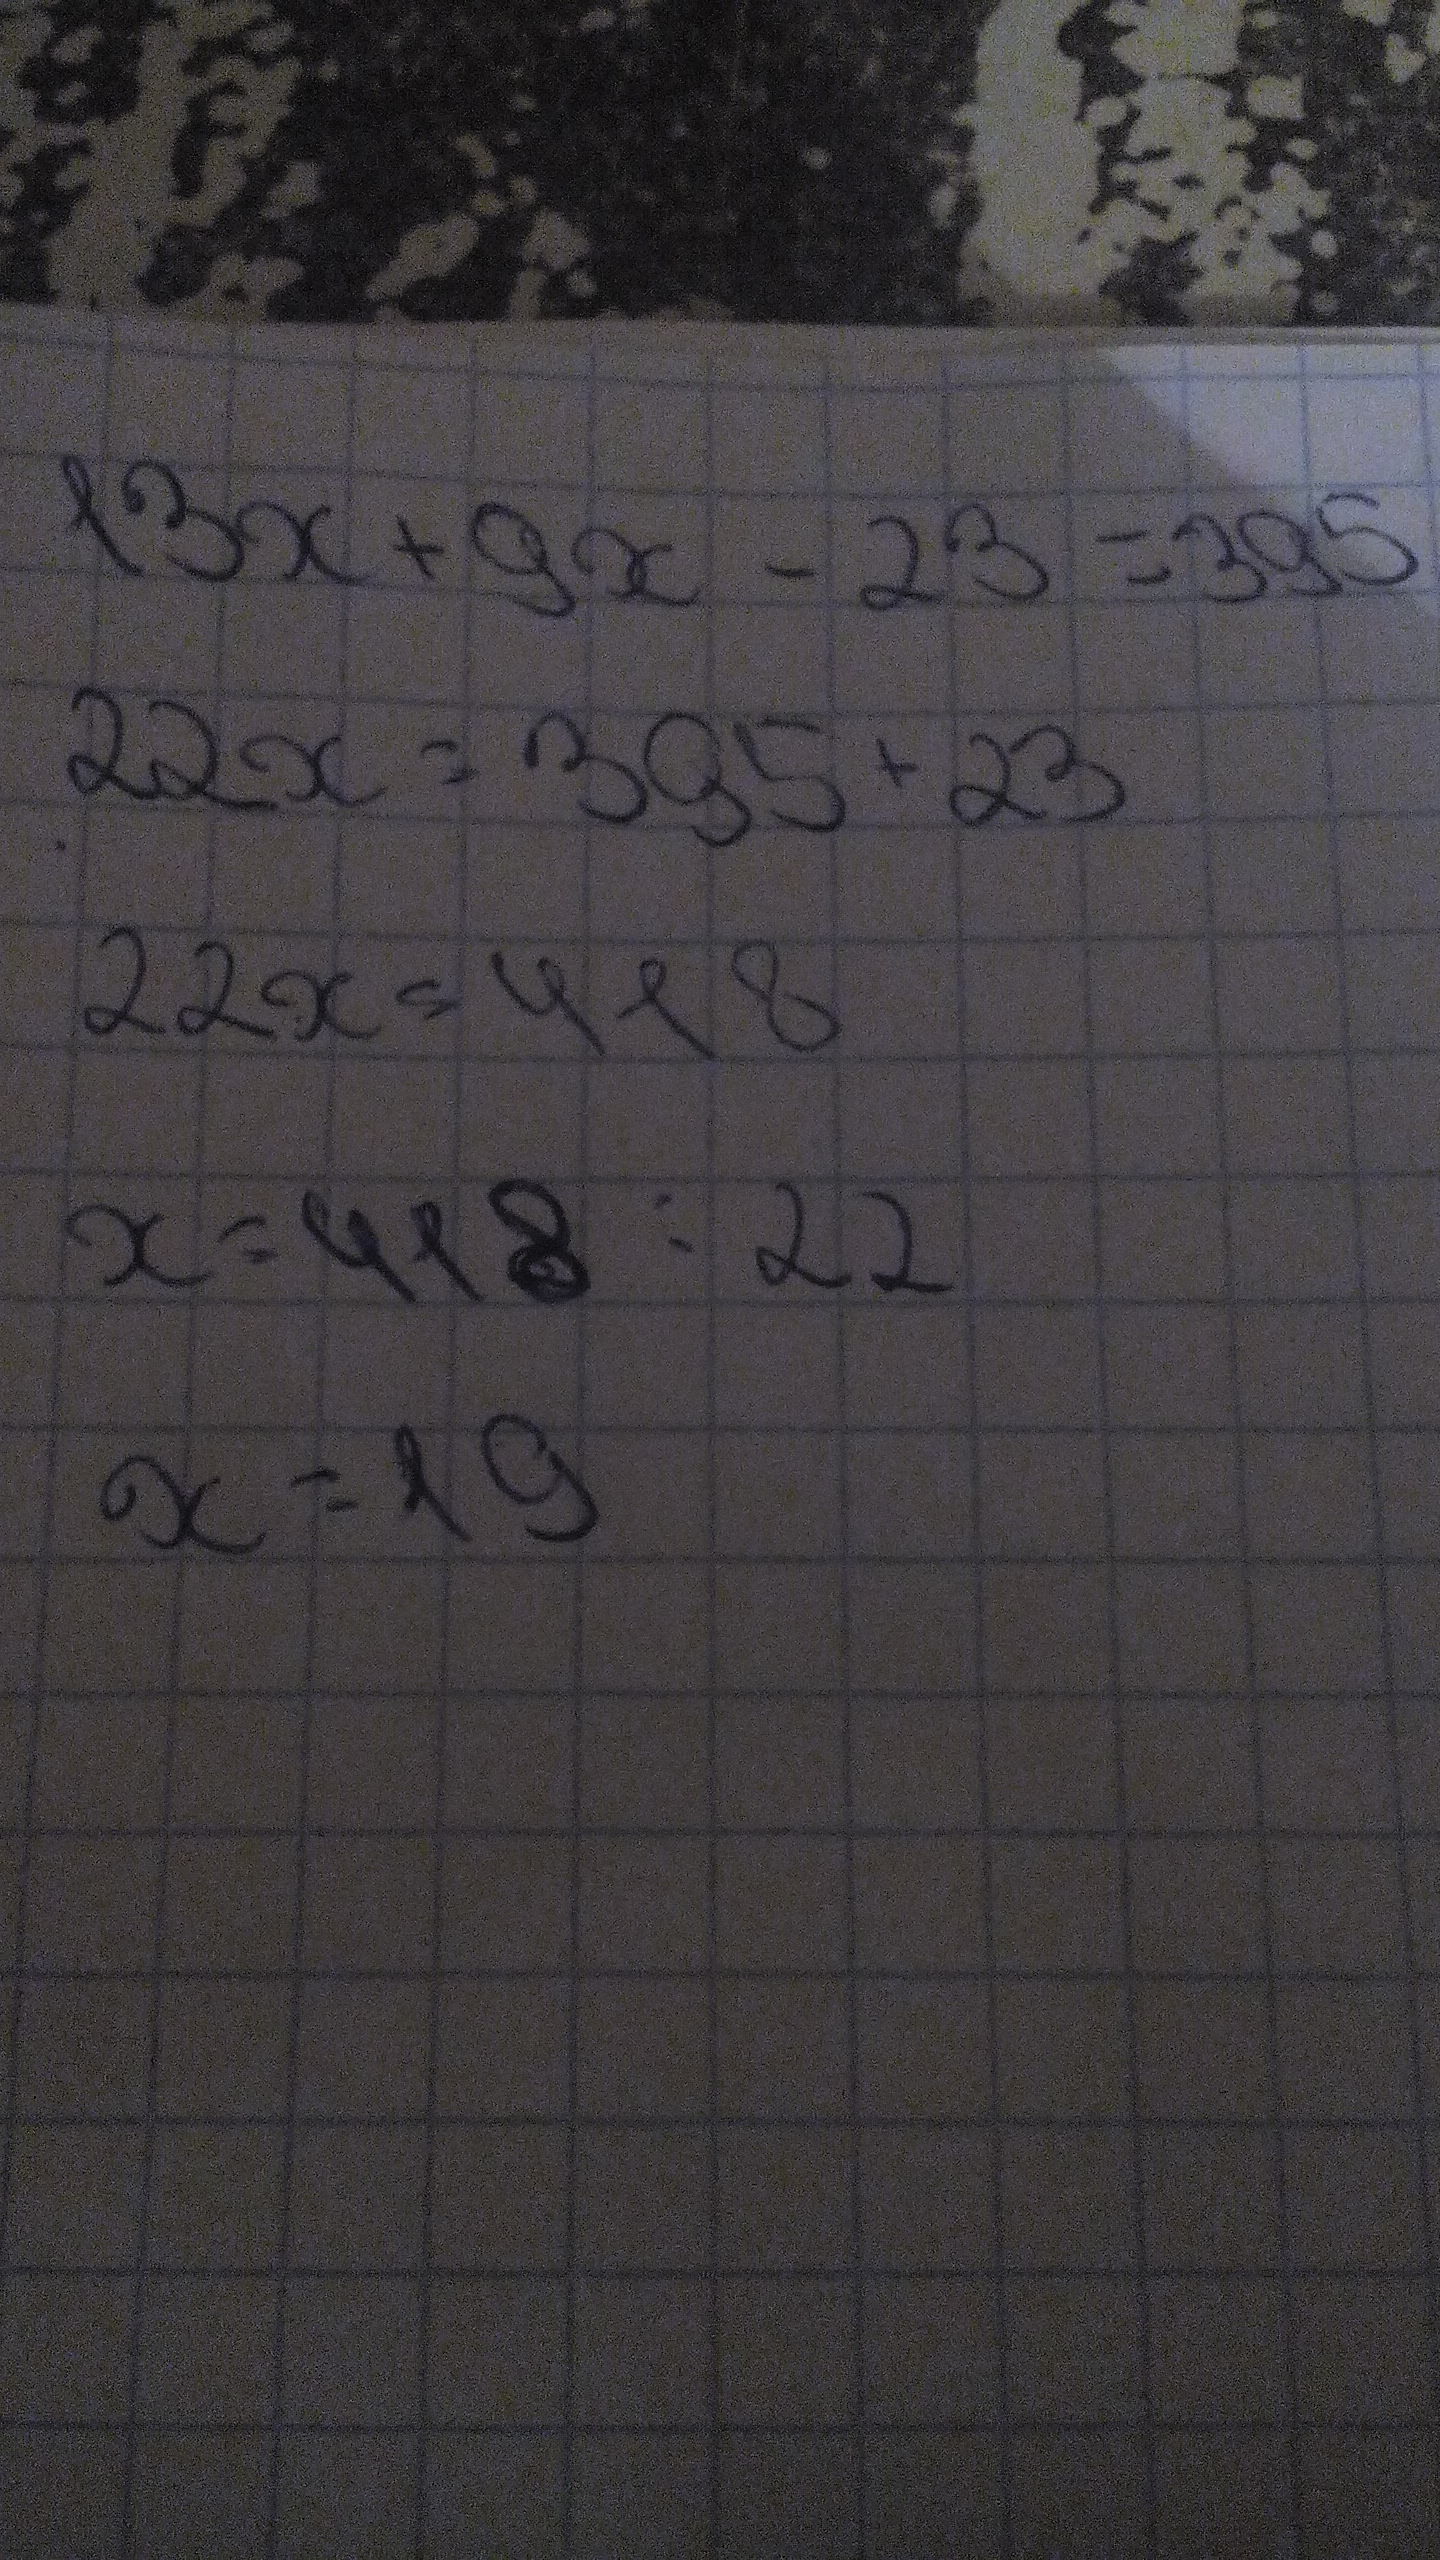 13x + 9x - 23 = 395
22x = 395 + 23
22x = 418
x = 418 : 22
x = 19